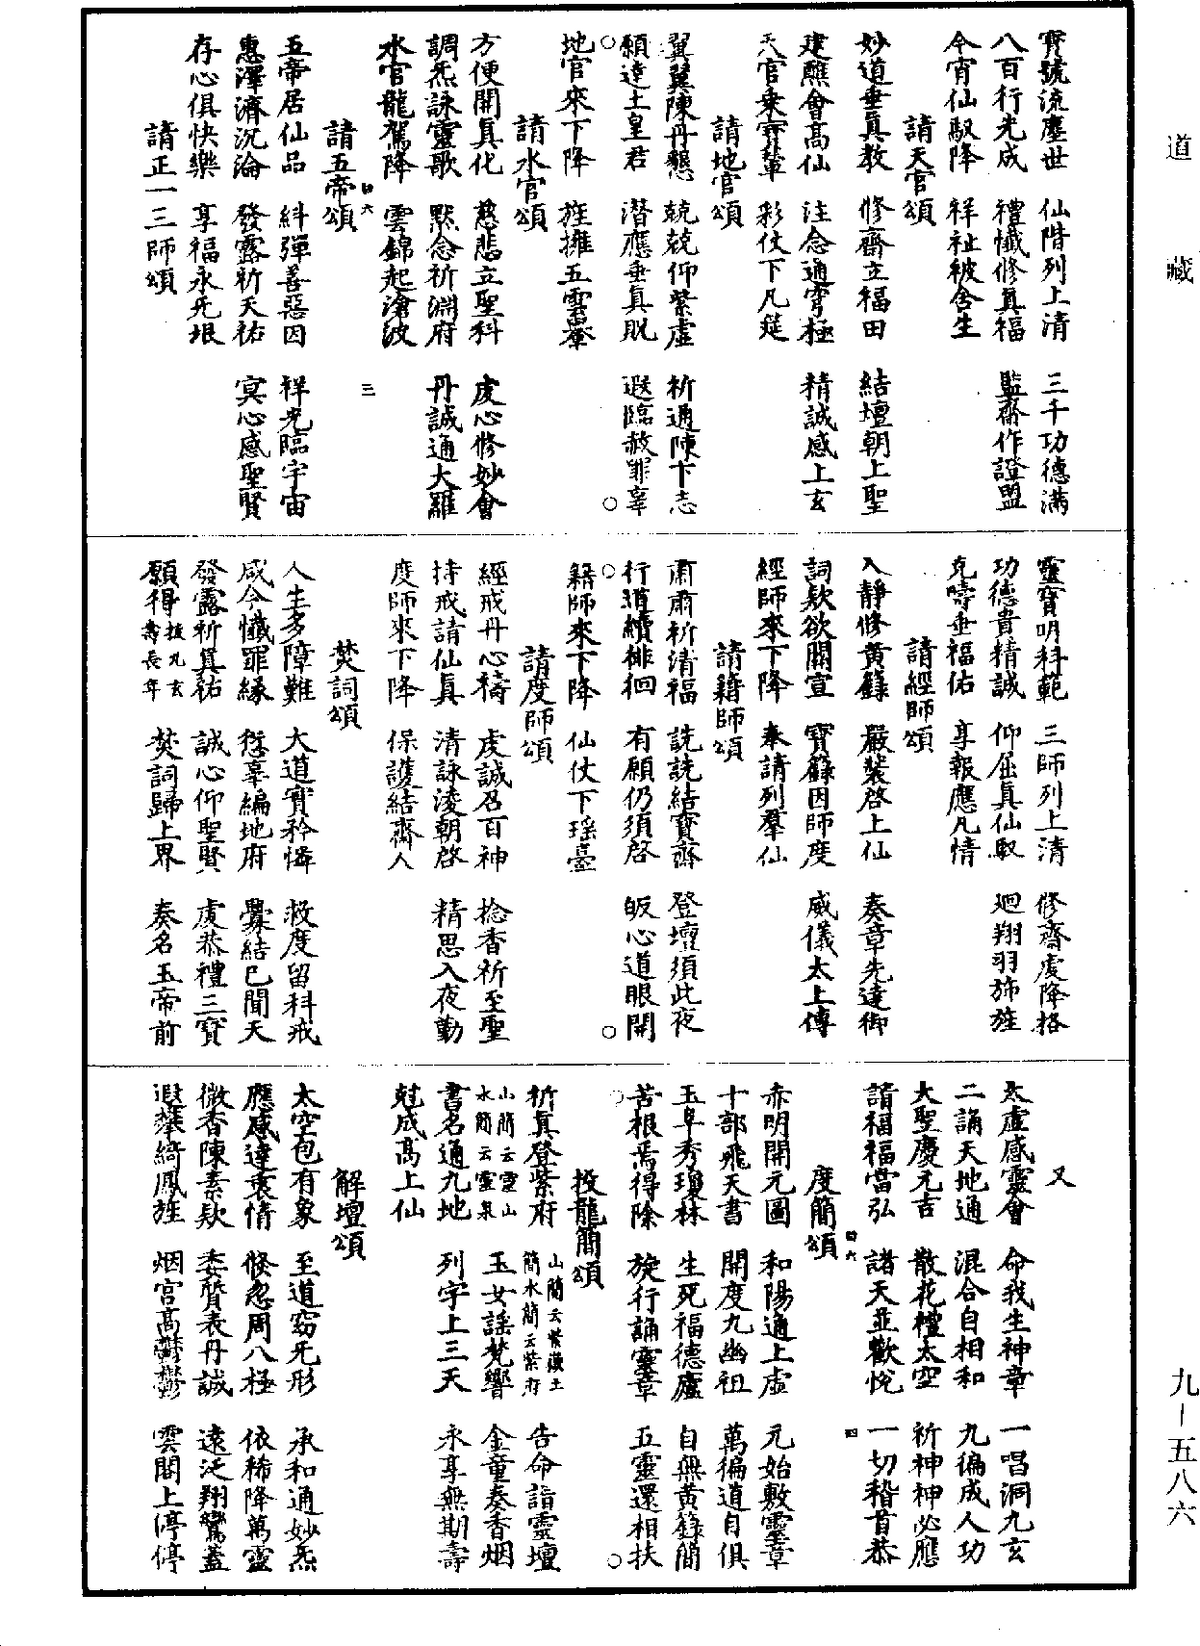 寶號流塵世　仙階列上清　三千功德滿
八百行光成　禮懺修眞福　監齋作證盟
今宵仙馭降　祥祉被含生
請天官頌
妙道垂眞教　修齋立福田　結壇朝上聖
建醮會高仙　注念通穹極　精誠感上玄
天官乘寶輦　彩仗下凡筵
請地官頌
翼翼陳丹懇　兢兢仰紫虛　祈通陳卞志
願達土皇君　潛應垂眞貺　遐臨赦罪辜
地官來下降　旌擁五雲輦
請水官頌
方便開眞化　慈悲立聖科　虔心修妙會
調炁詠靈歌　默念祈淵府　丹誠通大羅
水官龍駕降　雲錦起滄波
請五帝頌
五帝居仙品　糾彈善惡因　祥光臨宇宙
惠澤濟沉淪　發露祈天祐　冥心感聖賢
存心俱快樂　享福永无垠
請正一三師頌
靈寶明科範　三師列上清　修齋虔降格
功德貴精誠　仰屈眞仙馭　廻翔羽斾旌
克疇垂福佑　享報應凡情
請經師頌
入靜修黃籙　嚴裝啓上仙　奏章先達御
詞欵欲關宣　寶籙因師度　威儀太上傳
經師來下降　奉請列羣仙
請籍師頌
肅肅祈清福　詵詵結寶齋　登壇須此夜
行道續徘徊　有願仍須啓　皈心道眼開
籍師來下降　仙仗下瑤臺
請度師頌
經戒丹心禱　虔誠召百神　捻香祈至聖
持戒請仙眞　清詠淩朝啓　精思入夜勤
度師來下降　保護結齋人
焚詞頌
人生多障難　大道實矜憐　救度留科戒
咸今懺罪緣　愆辜編地府　釁結已聞天
發露祈眞祐　誠心仰聖賢　虔恭禮三寶
願得拔九玄壽長年　焚詞歸上界　奏名玉帝前
又
太虛感靈會　命我生神章　一唱洞九玄
二誦天地通　混合自相和　九徧成人功
大聖慶元吉　散花禮太空　祈神神必應
請福福當弘　諸天並歡悅　一切稽首恭
度簡頌
赤明開元圖　和陽通上虛　元始敷靈章
十部飛天書　開度九幽祖　萬徧道自俱
玉阜秀瓊林　生死福德廬　自無黃籙簡
苦根焉得除　旋行誦靈章　五靈還相扶
投龍簡頌
祈眞登紫府山簡云靈山水簡云靈泉　山簡云紫嶽土簡水簡云紫府　告命詣靈壇
玉女謠梵響　金童奏香烟
書名通九地　列字上三天　永享無期壽
尅成高上仙
解壇頌
太空包有象　至道窈无形　承和通妙炁
應感達衷情　倏忽周八極　依稀降萬靈
微香陳素欵　委質表丹誠　遠泛翔鸞蓋
遐攀綺鳳旌　烟宮高欝欝　雲閣上停停
道藏
九－五八六